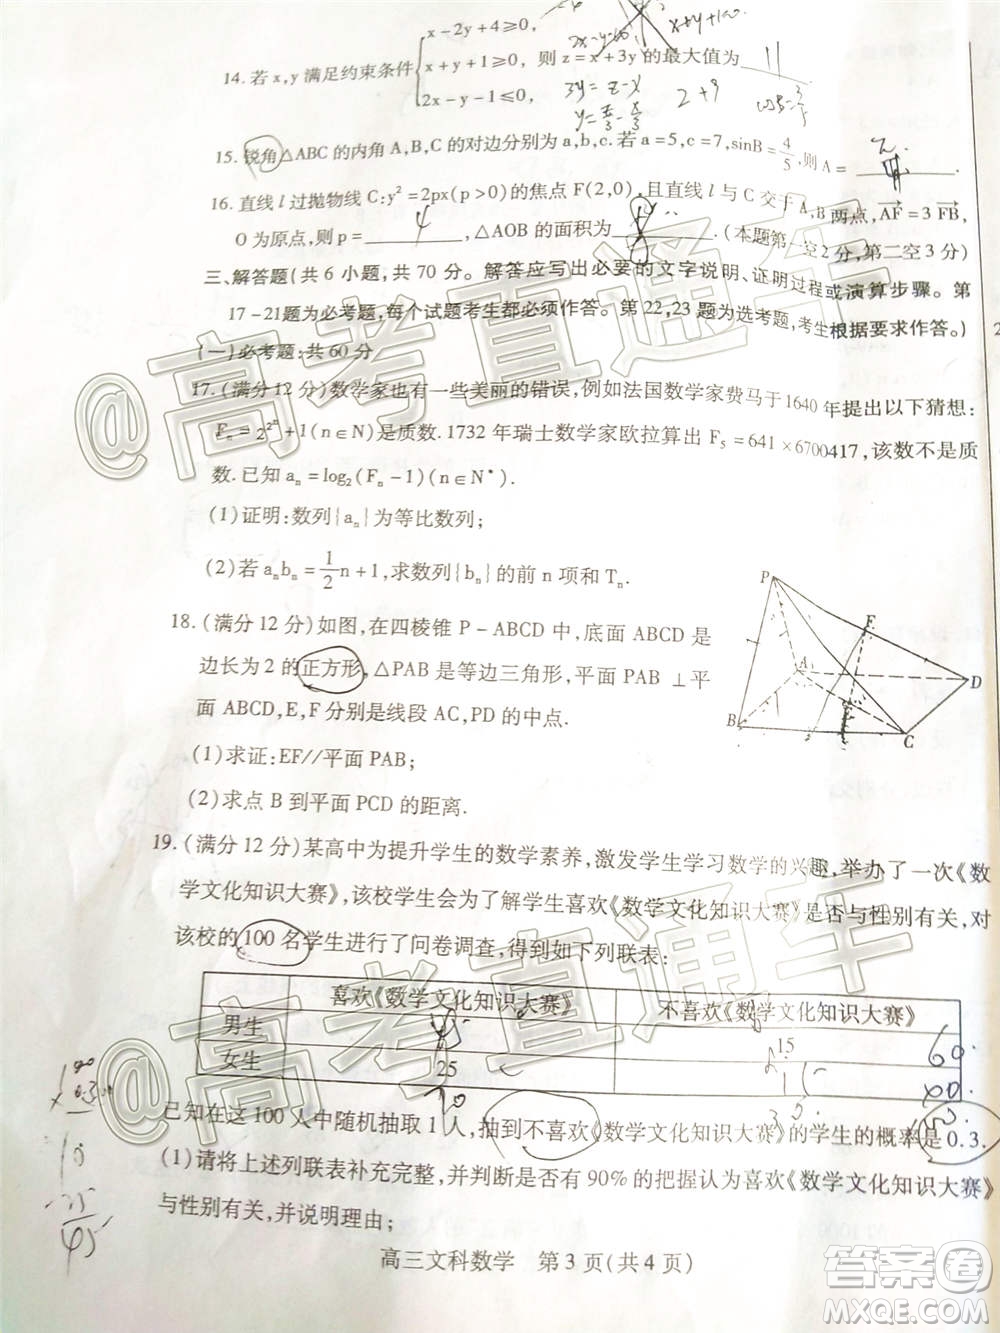 x-2y+4≥0,
14.若x,y满足约束条件 x+y+1≥0, 则z=x+3y的最大值为 11
2x-y-1≤0,
x+y+1=0
3y=z-x
2+9
15.锐角△ABC的内角A,B,C的对边分别为a,b,c.若a=5,c=7,sinB=4/5,则A=
16.直线l过抛物线C:y²=2px(p>0)的焦点F(2,0),且直线l与C交于A,B两点,AF=3FB,
O为原点,则p= 4 ,△AOB的面积为 .(本题第一空2分,第二空3分)
三、解答题(共6小题,共70分。解答应写出必要的文字说明、证明过程或演算步骤。第
17-21题为必考题,每个试题考生都必须作答。第22,23题为选考题,考生根据要求作答。)
(一)必考题:共60分
17.(满分12分)数学家也有一些美丽的错误,例如法国数学家费马于1640年提出以下猜想:
Fₙ=2^(2^n)+1(n∈N)是质数.1732年瑞士数学家欧拉算出F₅=641×6700417,该数不是质
数.已知aₙ=log₂(Fₙ-1)(n∈N*).
(1)证明:数列{aₙ}为等比数列;
(2)若aₙbₙ=1/2n+1,求数列{bₙ}的前n项和Tₙ.
18.(满分12分)如图,在四棱锥P-ABCD中,底面ABCD是
边长为2的正方形,△PAB是等边三角形,平面PAB⊥平
面ABCD,E,F分别是线段AC,PD的中点.
(1)求证:EF//平面PAB;
(2)求点B到平面PCD的距离.
P
F
A
D
B
C
19.(满分12分)某高中为提升学生的数学素养,激发学生学习数学的兴趣,举办了一次《数
学文化知识大赛》,该校学生会为了解学生喜欢《数学文化知识大赛》是否与性别有关,对
该校的100名学生进行了问卷调查,得到如下列联表:
喜欢《数学文化知识大赛》 不喜欢《数学文化知识大赛》
男生 15 60
女生 25 15
70
已知在这100人中随机抽取1人,抽到不喜欢《数学文化知识大赛》的学生的概率是0.3.
(1)请将上述列联表补充完整,并判断是否有90%的把握认为喜欢《数学文化知识大赛》
与性别有关,并说明理由;
高三文科数学 第3页(共4页)
@高考直通车
@高考直通车
答案圈
MXQE.COM